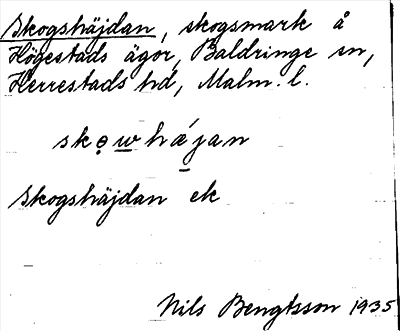 Skogshäjdan, skogsmark å
Högestads ägor, Baldringe sn,
Herrestads hd, Malm. l.
skǫwhǽjan
Skogshäjdan ek
Nils Bengtsson 1935